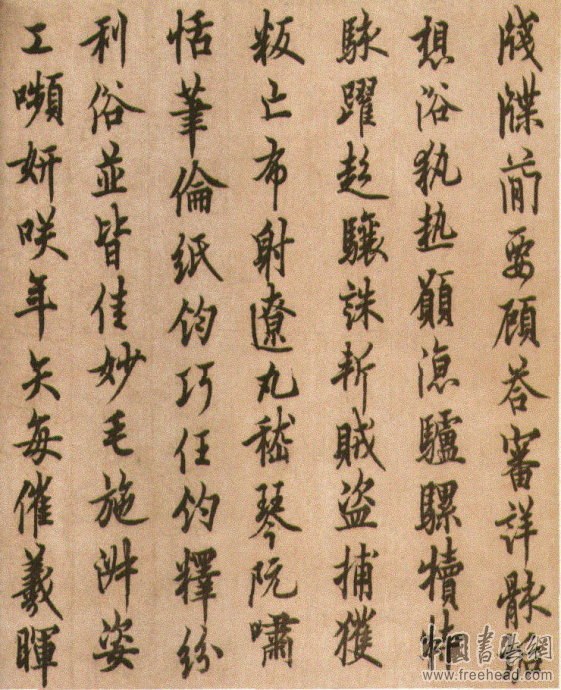 牋牒簡要顧答審詳骸垢
想浴執熱願凉驢騾犢特
駭躍超驤誅斬賊盜捕獲
叛亡布射遼丸嵇琴阮嘯
恬筆倫紙鈞巧任鈞釋紛
利俗並皆佳妙毛施淑姿
工嚬妍咲年矢每催羲暉
中国書法網
www.freehead.com